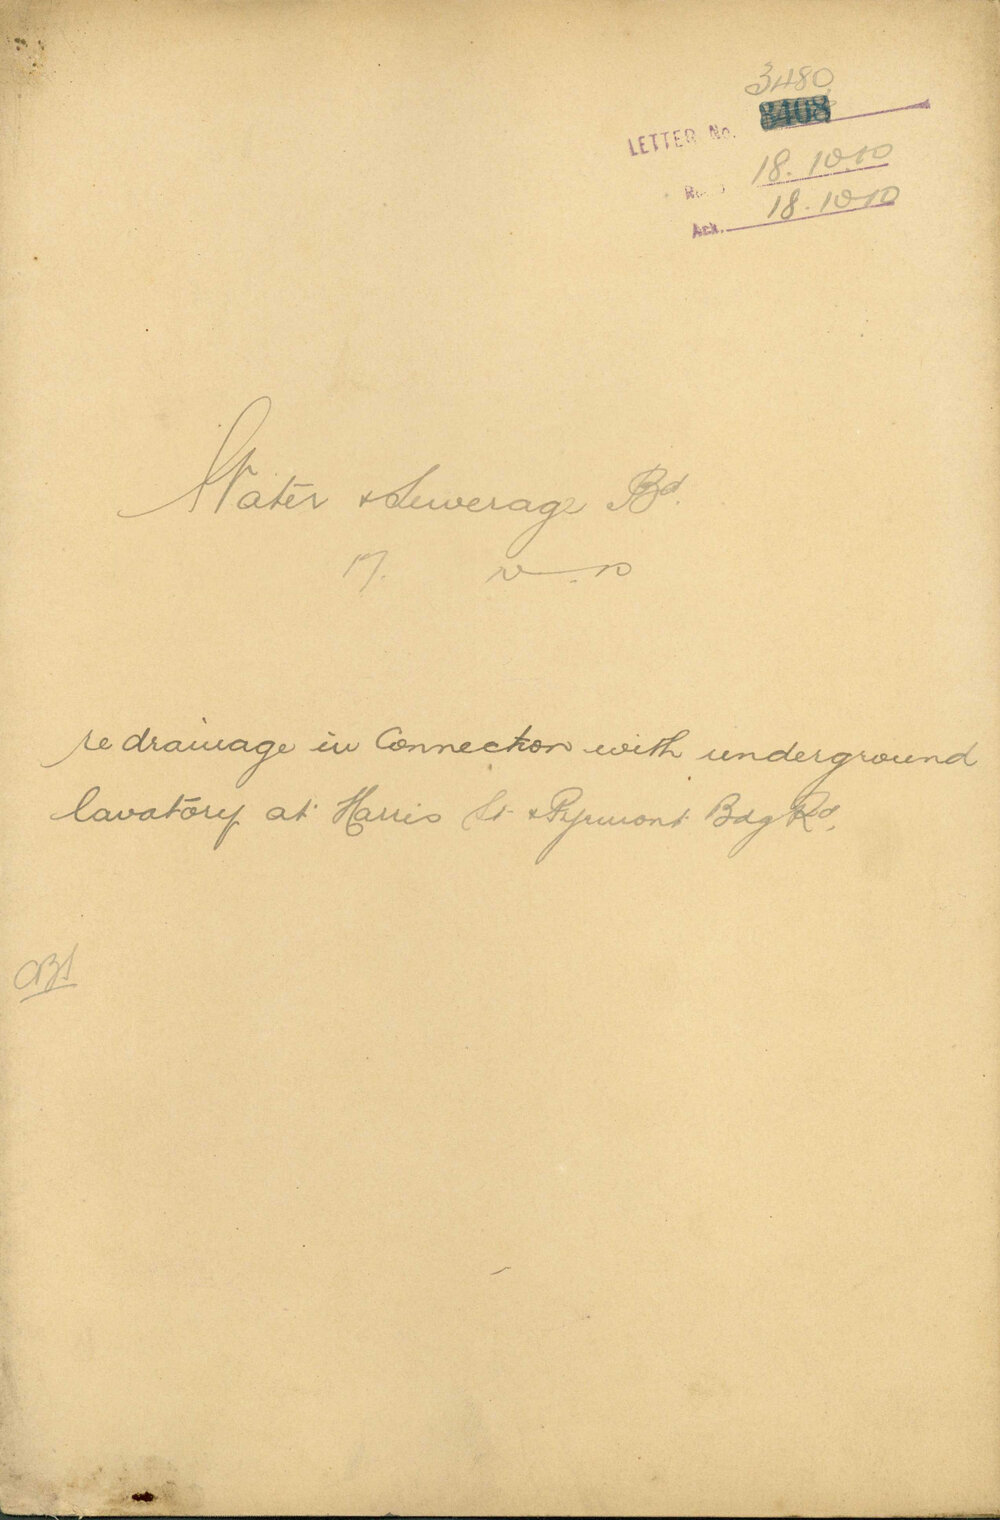 3480
LETTER No. 3408
18.10.10
Ack. 18.10.10
Water & Sewerage Bd.
17. 10. 10
re drainage in Connection with underground
lavatory at Harris St & Pyrmont Bdg Rd.